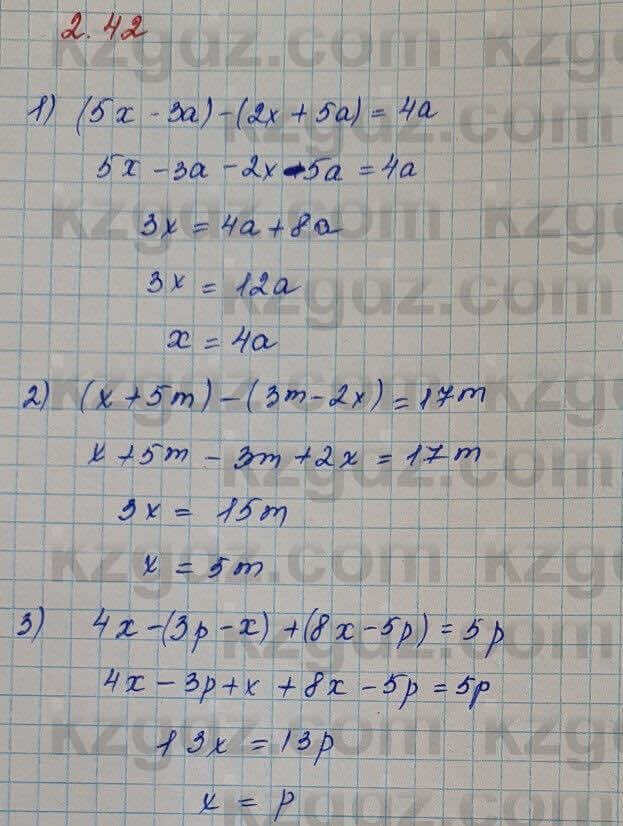 2.42
1) (5x - 3a) - (2x + 5a) = 4a
5x - 3a - 2x - 5a = 4a
3x = 4a + 8a
3x = 12a
x = 4a
2) (x + 5m) - (3m - 2x) = 17m
x + 5m - 3m + 2x = 17m
3x = 15m
x = 5m
3) 4x - (3p - x) + (8x - 5p) = 5p
4x - 3p + x + 8x - 5p = 5p
13x = 13p
x = p
kzgdz.com